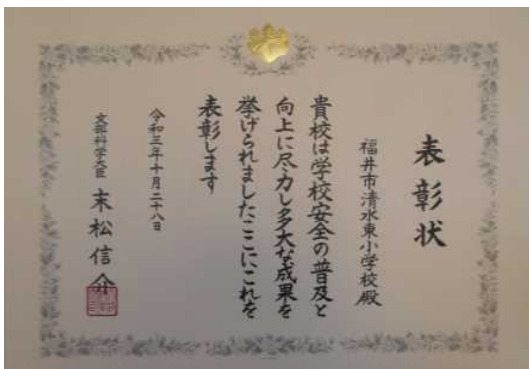 表彰状
福井市清水東小学校殿
貴校は学校安全の普及と
向上に尽力し多大な成果を
挙げられましたここにこれを
表彰します
令和三年十月二十八日
文部科学大臣 末松信介